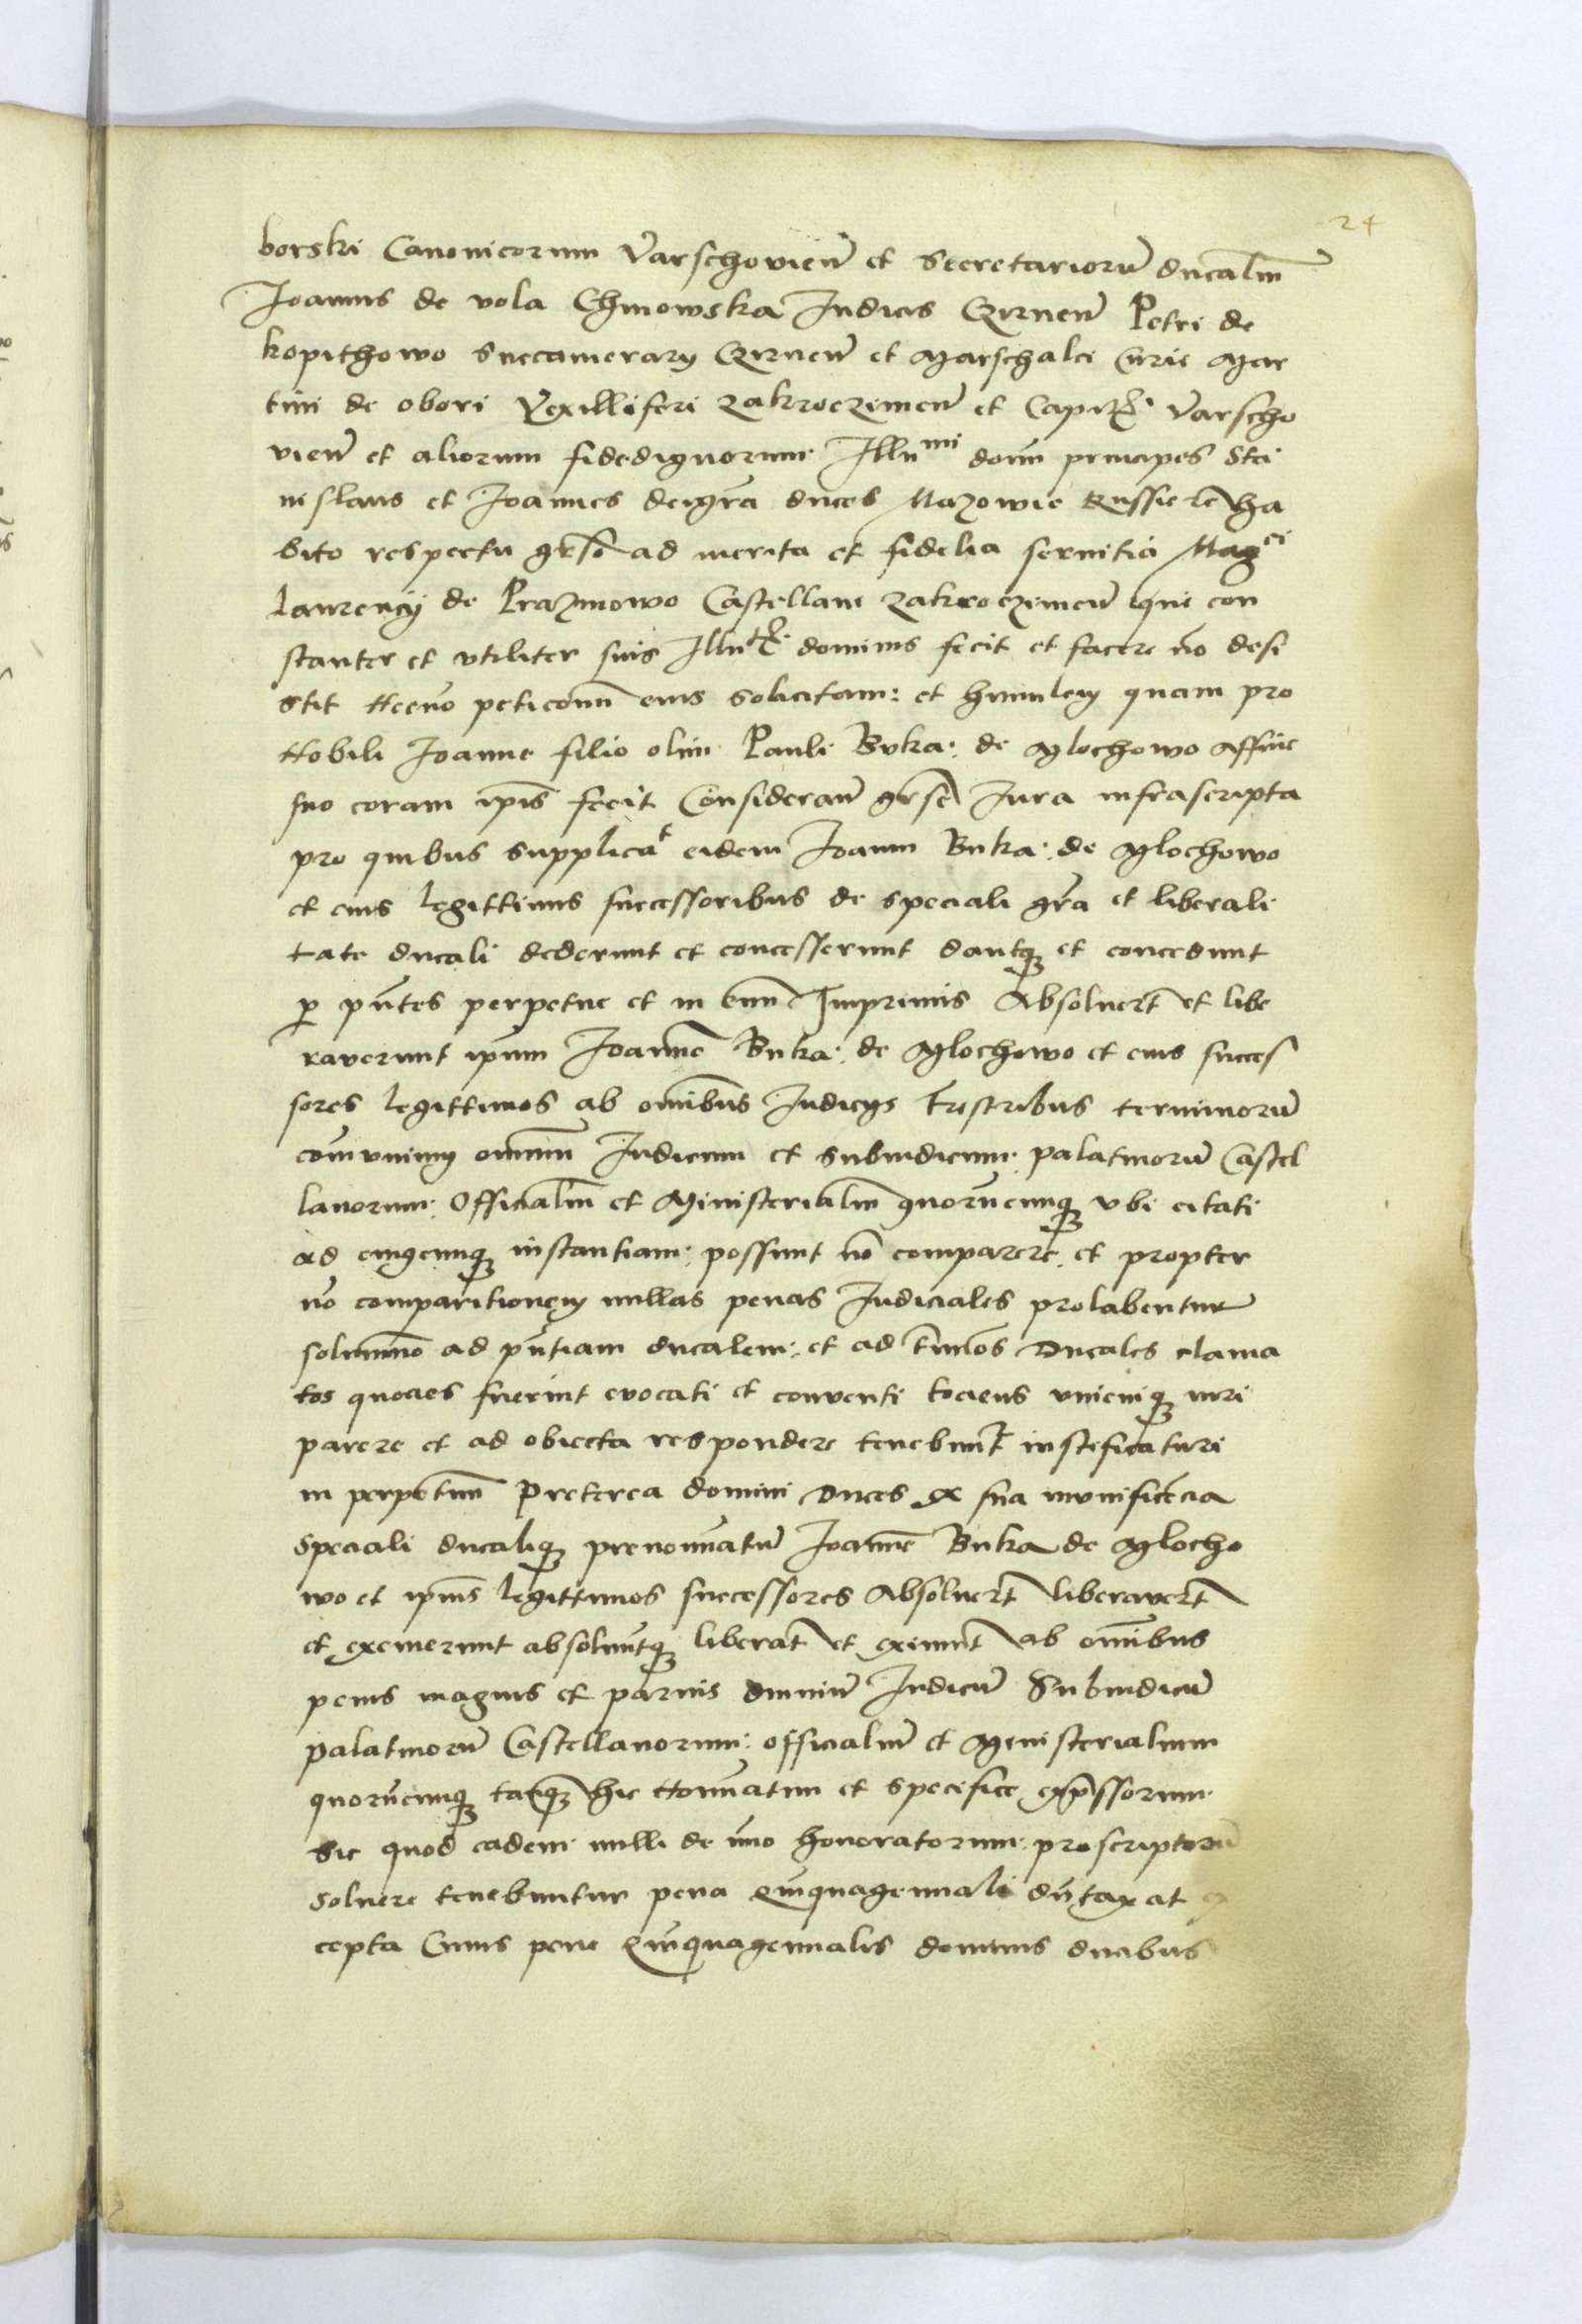 24
borski Canonicorum Varschovieñ et Secretariorũ ducaliũ
Joannis de vola Chinowska Judicis Czirneñ Petri de
kopithowo Succamerarij Czirneñ et Marschalci Curie Mar
tini de obori Vexilliferi zakroczimeñ et Capitͣ Varscho
vieñ et aliorum fidedignorum Illuᵐⁱ domĩ principes Sta
nislaus et Joannes dei gr̃a duces Mazowie Russie ha
bito respectu gr̃so ad merita et fidelia servitia Magᶜⁱ
Laurencij de Prazmowo Castellani zakroczimeñ qui con
stanter et vtiliter suis Illu dominis fecit et facere nõ desi
stit Necnõ peticonẽ eius solicitam et humilem quam pro
Nobili Joanne filio olim Pauli Buka de Mlochowo Affine
suo coram ip̃is fecit Considerañ gr̃se Jura infrascripta
pro quibus supplicaᵗ eidem Joanni Buka de Mlochowo
et eius legittimis successoribus de speciali gr̃a et liberali
tate ducali dederunt et concesserunt dantqꝫ et concedunt
ꝑ pñtes perpetue et in eũm Imprimis Absoluerᵗ et libe
raverunt ipsum Joannẽ Buka de Mlochowo et eius succes
sores legittimos ab omĩbus Judicijs trr̃estribus terminorũ
com̃unium omniũ Judicum et subiudicum palatinorũ Castel
lanorum Officialiũ et Ministerialiũ quorũcunqꝫ vbi citati
ad cuiuscunqꝫ instantiam possunt nõ comparere et propter
nõ comparitionem nullas penas Judiciales prolabentur
solum̃o ad pñtiam ducalem et ad tm̃inos Ducales clama
tos quocies fuerint evocati et conventi tociens vnicuiqꝫ iuri
parere et ad obiecta respondere tenebunᵗ iustificaturi
in perpetuũ Preterea domini Duces ex sua munificẽcia
speciali ducaliqꝫ prenomĩatũ Joannẽ Buka de Mlocho
wo et ip̃ius legittimos successores Absoluerᵗ liberaverᵗ
et exemerunt absoluũtqꝫ liberãt et eximũt ab omĩbus
penis magnis et parvis omniũ Judicũ Subiudicũ
palatinorũ Castellanorum officialiũ et Ministerialium
quorũcunqꝫ tanqꝫ hic Nomĩatim et specifice exp̃ssorum
Sic quod eadem nulli de im̃o honoratorum proscriptorũ
soluere tenebuntur pena quĩquagennali dũtaxat ex
cepta Cuius pene quĩquagennalis dominis ducibus